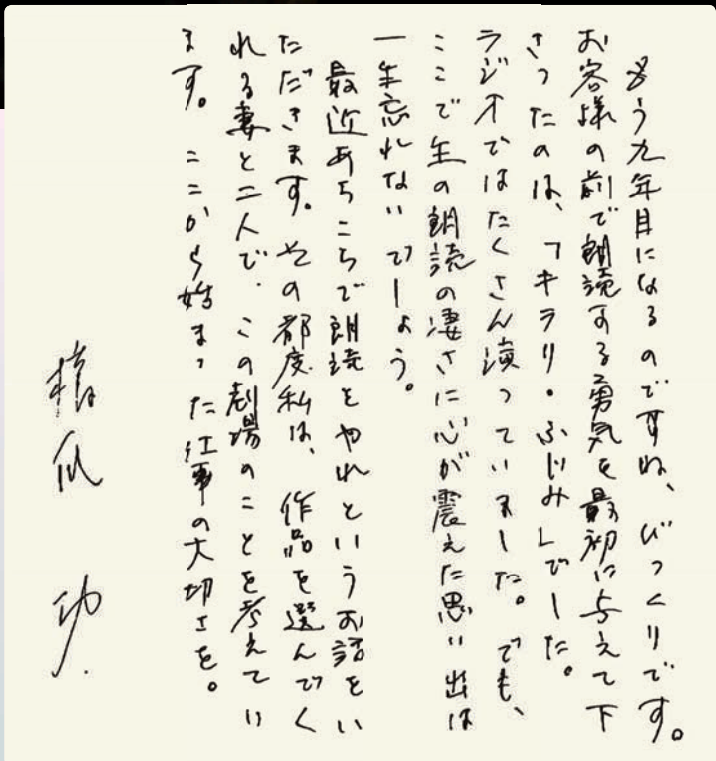 もう九年目になるのですね、びっくりです。
お客様の前で朗読する勇気を最初に与えて下
さったのは、「キラリ・ふじみ」でした。
ラジオではたくさん演っていました。でも、
ここで生の朗読の凄さに心が震えた思い出は
一生忘れないでしょう。
最近あちこちで朗読をやれというお話をい
ただきます。その都度私は、作品を選んでく
れる妻と二人で、この劇場のことを考えてい
ます。ここから始まった仕事の大切さを。